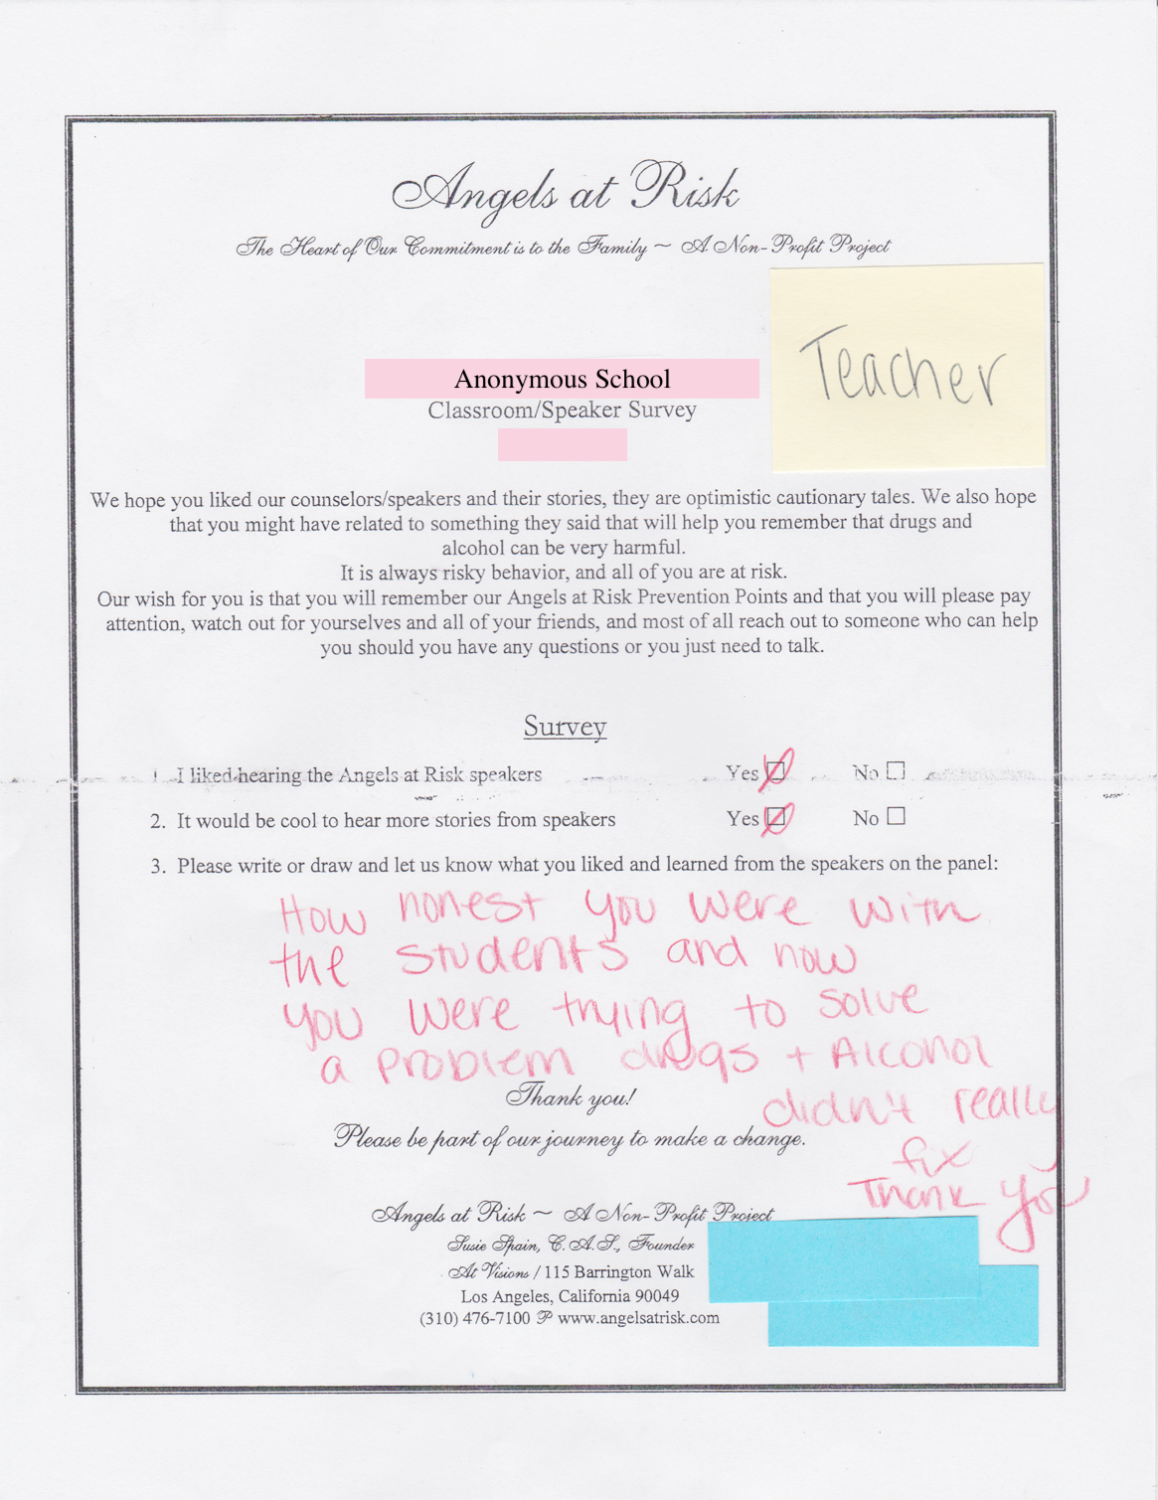 Angels at Risk
The Heart of Our Commitment is to the Family ~ A Non-Profit Project
Teacher
Anonymous School
Classroom/Speaker Survey
We hope you liked our counselors/speakers and their stories, they are optimistic cautionary tales. We also hope
that you might have related to something they said that will help you remember that drugs and
alcohol can be very harmful.
It is always risky behavior, and all of you are at risk.
Our wish for you is that you will remember our Angels at Risk Prevention Points and that you will please pay
attention, watch out for yourselves and all of your friends, and most of all reach out to someone who can help
you should you have any questions or you just need to talk.
Survey
1. I liked hearing the Angels at Risk speakers Yes No
2. It would be cool to hear more stories from speakers Yes No
3. Please write or draw and let us know what you liked and learned from the speakers on the panel:
How honest you were with
the students and how
you were trying to solve
a problem drugs + Alcohol
didn't really
fix
Thank you
Thank you!
Please be part of our journey to make a change.
Angels at Risk ~ A Non-Profit Project
Susie Spain, C.A.S., Founder
At Visions / 115 Barrington Walk
Los Angeles, California 90049
(310) 476-7100 P www.angelsatrisk.com